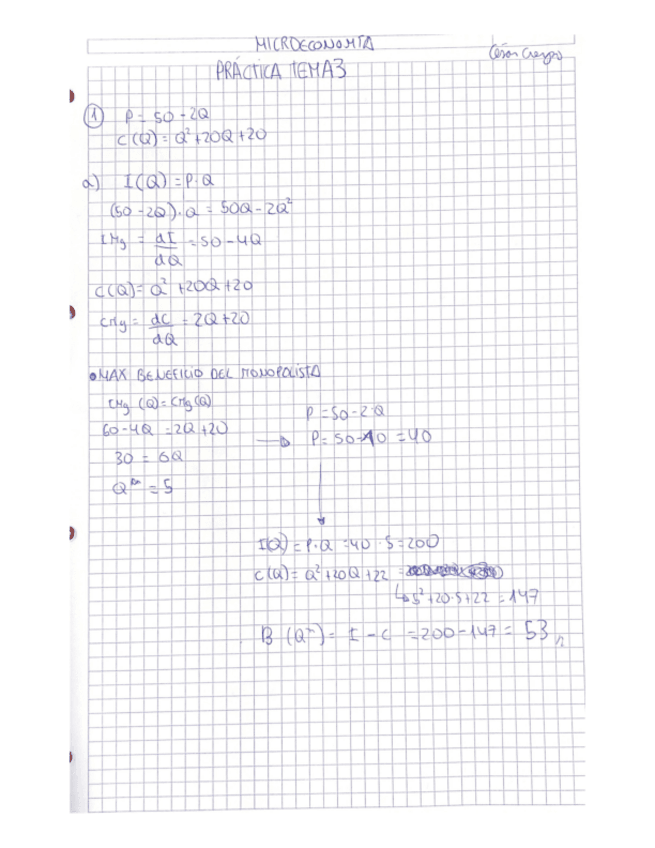 MICROECONOMÍA
César Crespo
PRÁCTICA TEMA 3
① P = 50 - 2Q
C(Q) = Q² + 20Q + 20
a) I(Q) = P·Q
(50 - 2Q)·Q = 50Q - 2Q²
IMg = dI/dQ = 50 - 4Q
C(Q) = Q² + 20Q + 20
CMg = dC/dQ = 2Q + 20
• MAX BENEFICIO DEL MONOPOLISTA
IMg (Q) = CMg (Q)
50 - 4Q = 2Q + 20
30 = 6Q
Qᵐ = 5
P = 50 - 2·Q
→ P = 50 - 10 = 40
I(Q) = P·Q = 40·5 = 200
C(Q) = Q² + 20Q + 22 =
↳ 5² + 20·5 + 22 = 147
B (Qᵐ) = I - C = 200 - 147 = 53